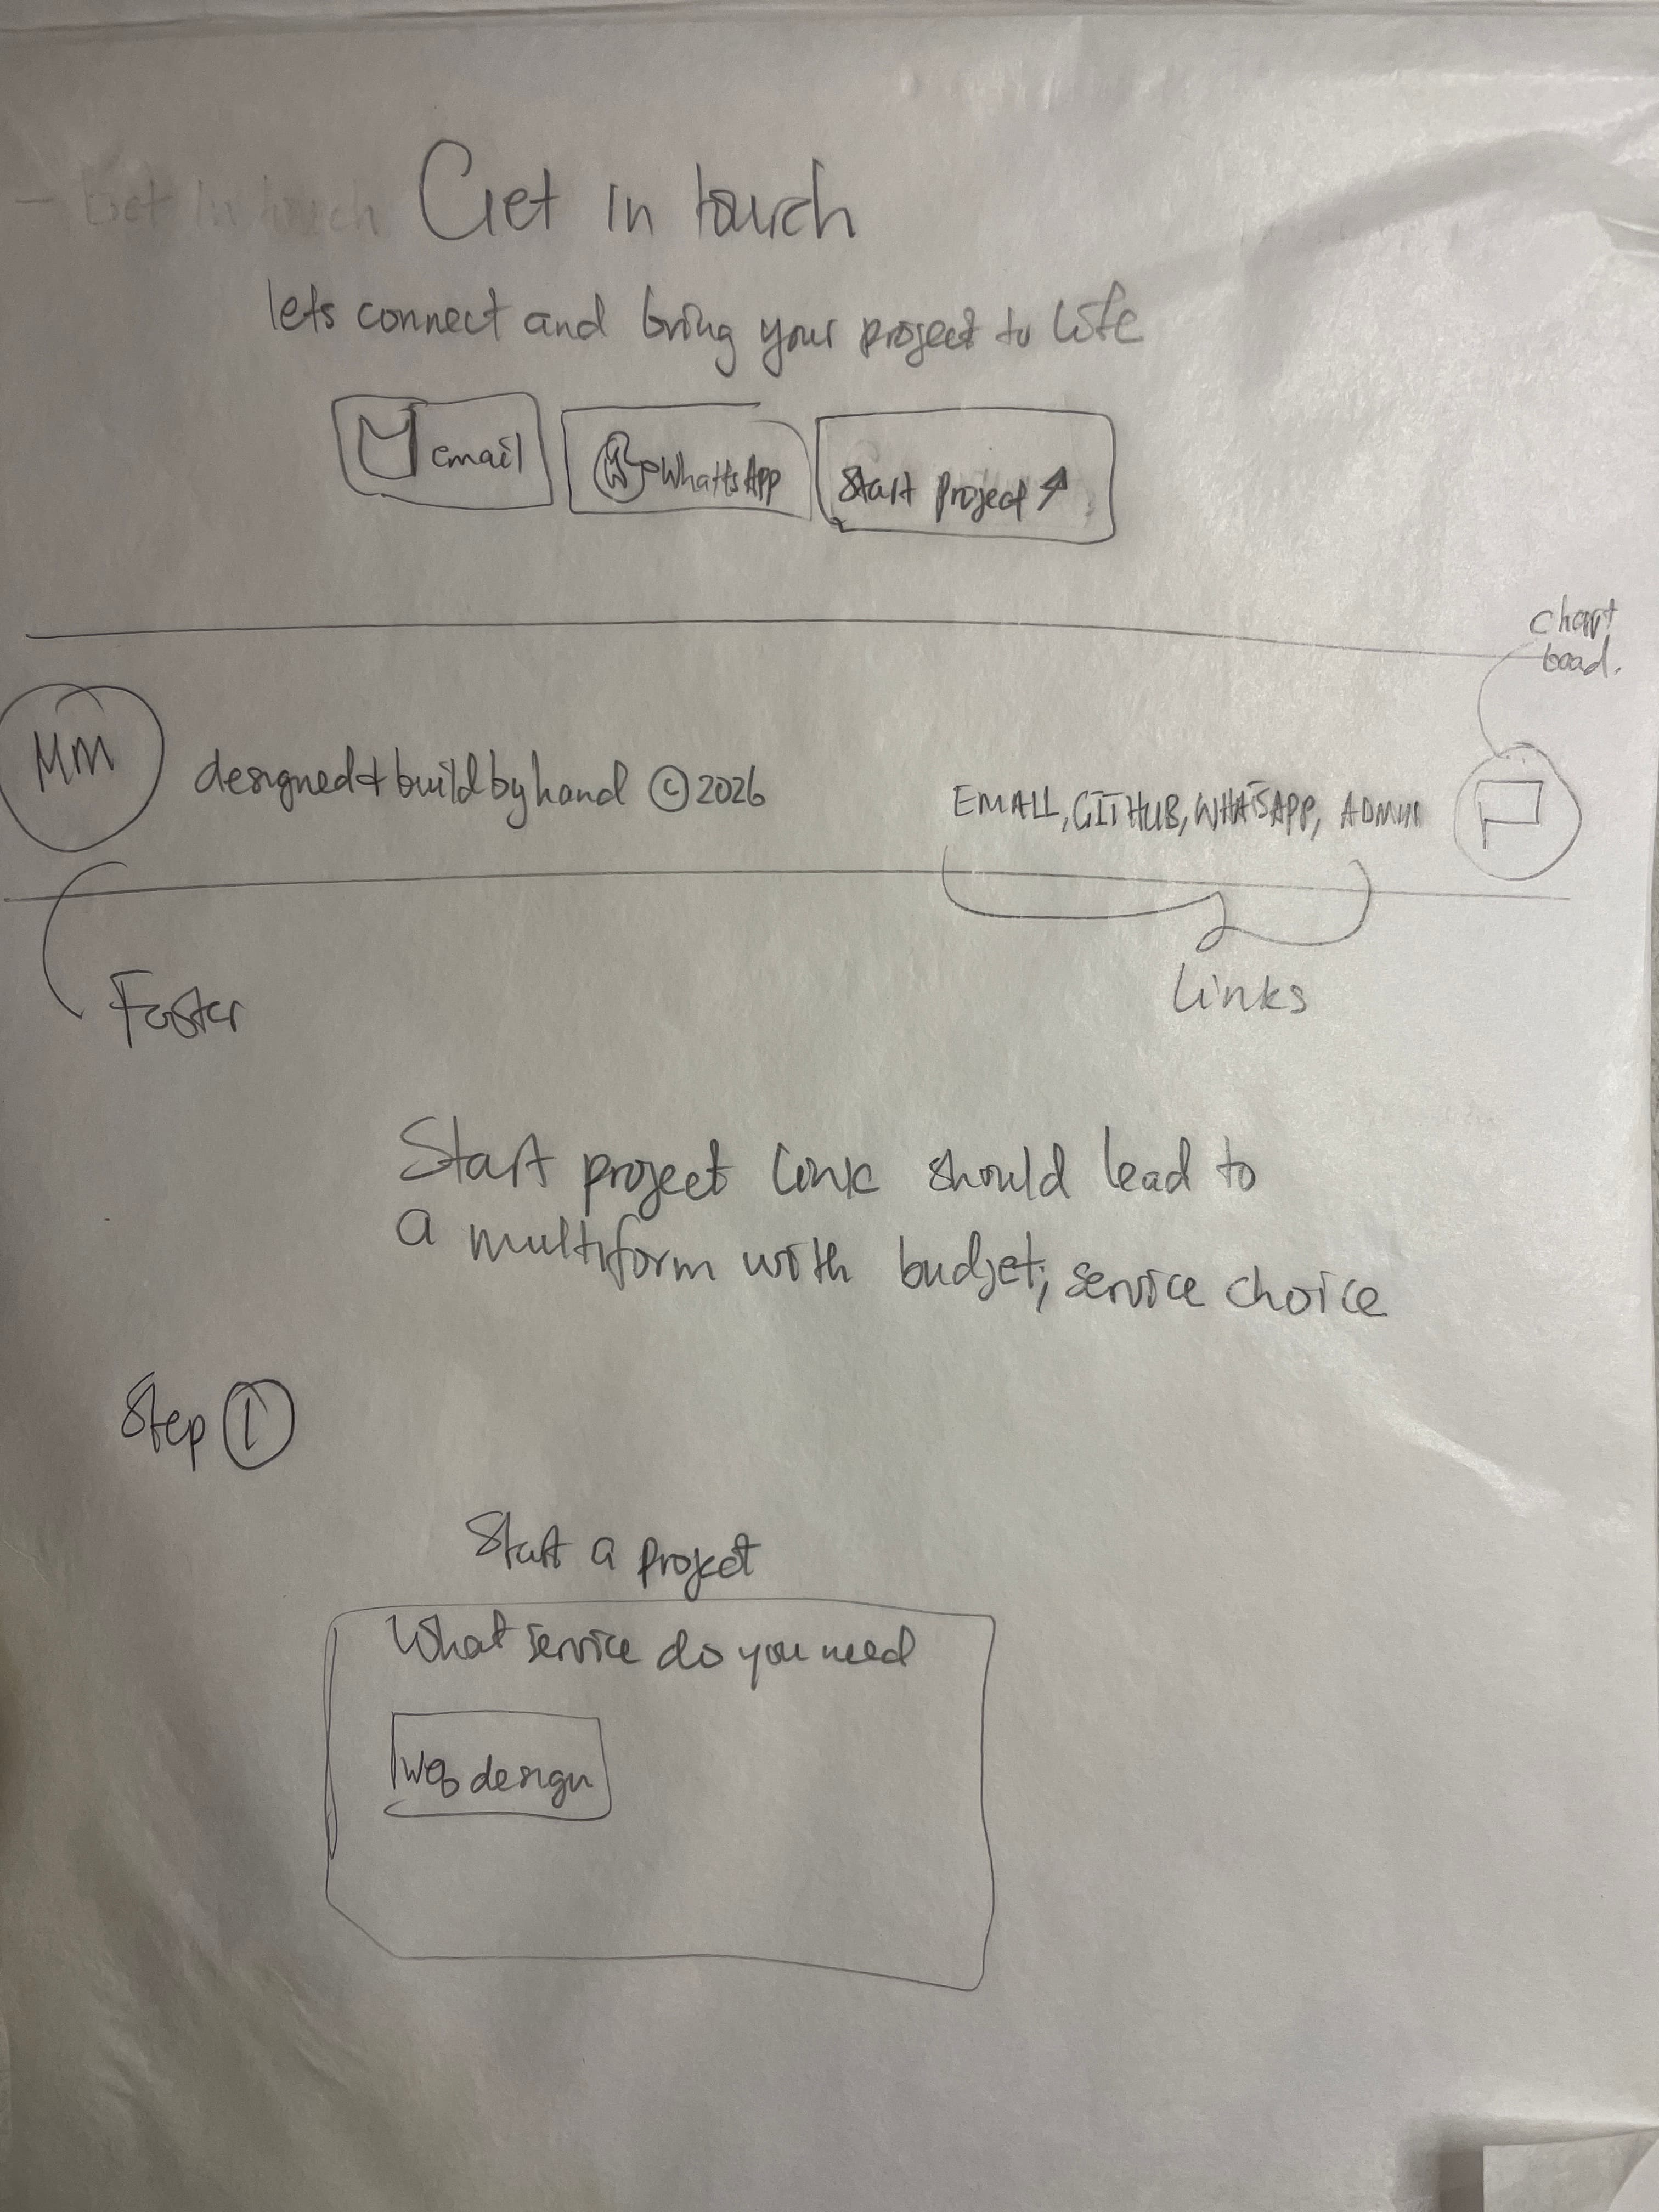 - Get in touch
Get in touch
lets connect and bring your project to life
email
WhattsApp
Start project
chart
boad.
MM
designed & build by hand © 2026
EMAIL, GITHUB, WHATSAPP, ADMIN
Footer
links
Start project link should lead to
a multiform with budget; service choice
Step 1
Start a project
What service do you need
Web design